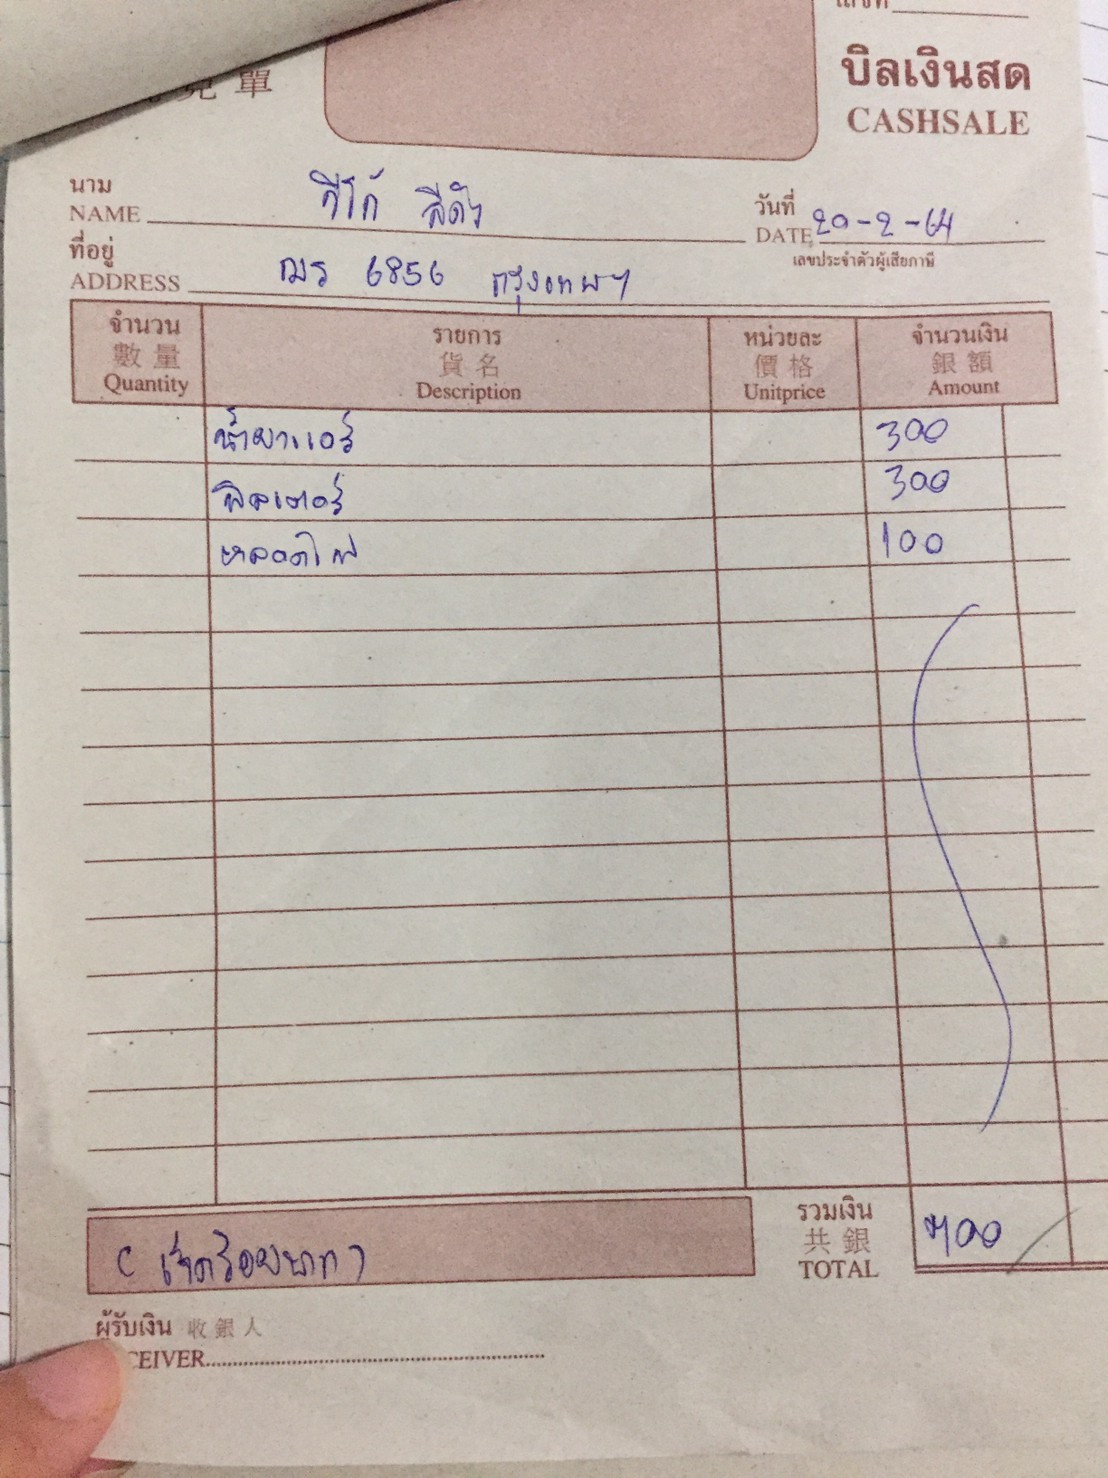 單
บิลเงินสด
CASHSALE
นาม
NAME วีโก้ สีดำ
วันที่
DATE 20-2-64
ที่อยู่
ADDRESS ฌร 6856 กรุงเทพฯ
เลขประจำตัวผู้เสียภาษี
จำนวน รายการ หน่วยละ จำนวนเงิน
數量 貨名 價格 銀額
Quantity Description Unitprice Amount
น้ำยาแอร์ 300
ฟิลเตอร์ 300
หลอดไฟ 100
(เจ็ดร้อยบาท)
รวมเงิน
共銀
TOTAL 700
ผู้รับเงิน 收銀人
CEIVER